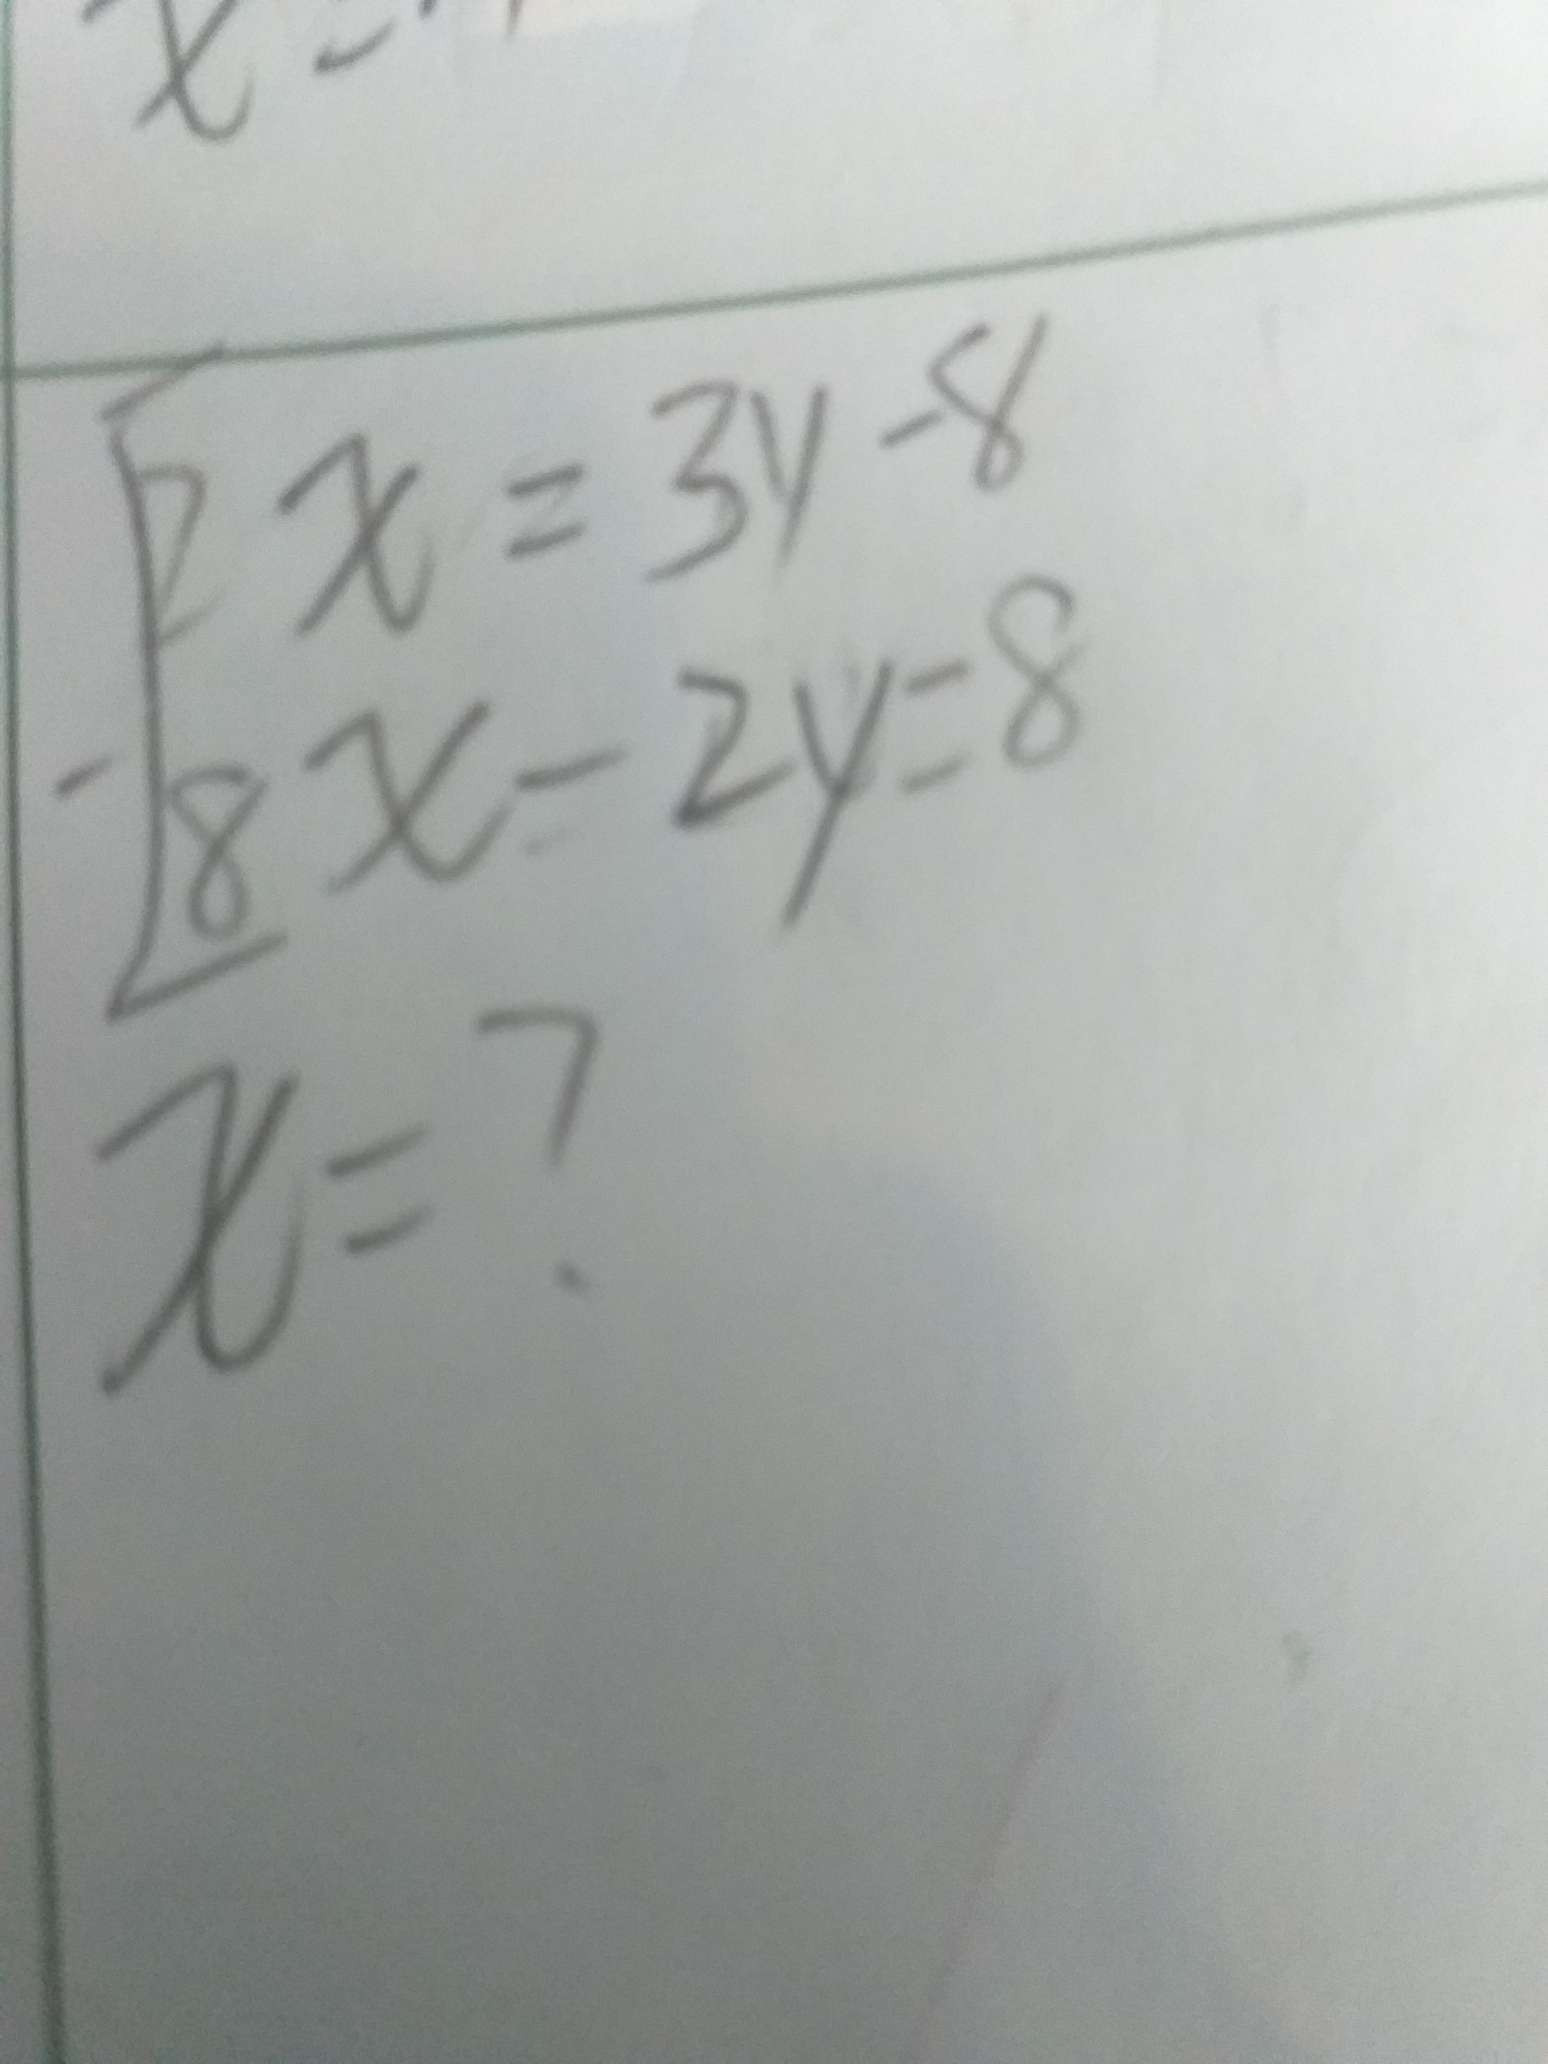 x =
2x = 3y - 8
8x - 2y = 8
x = ?